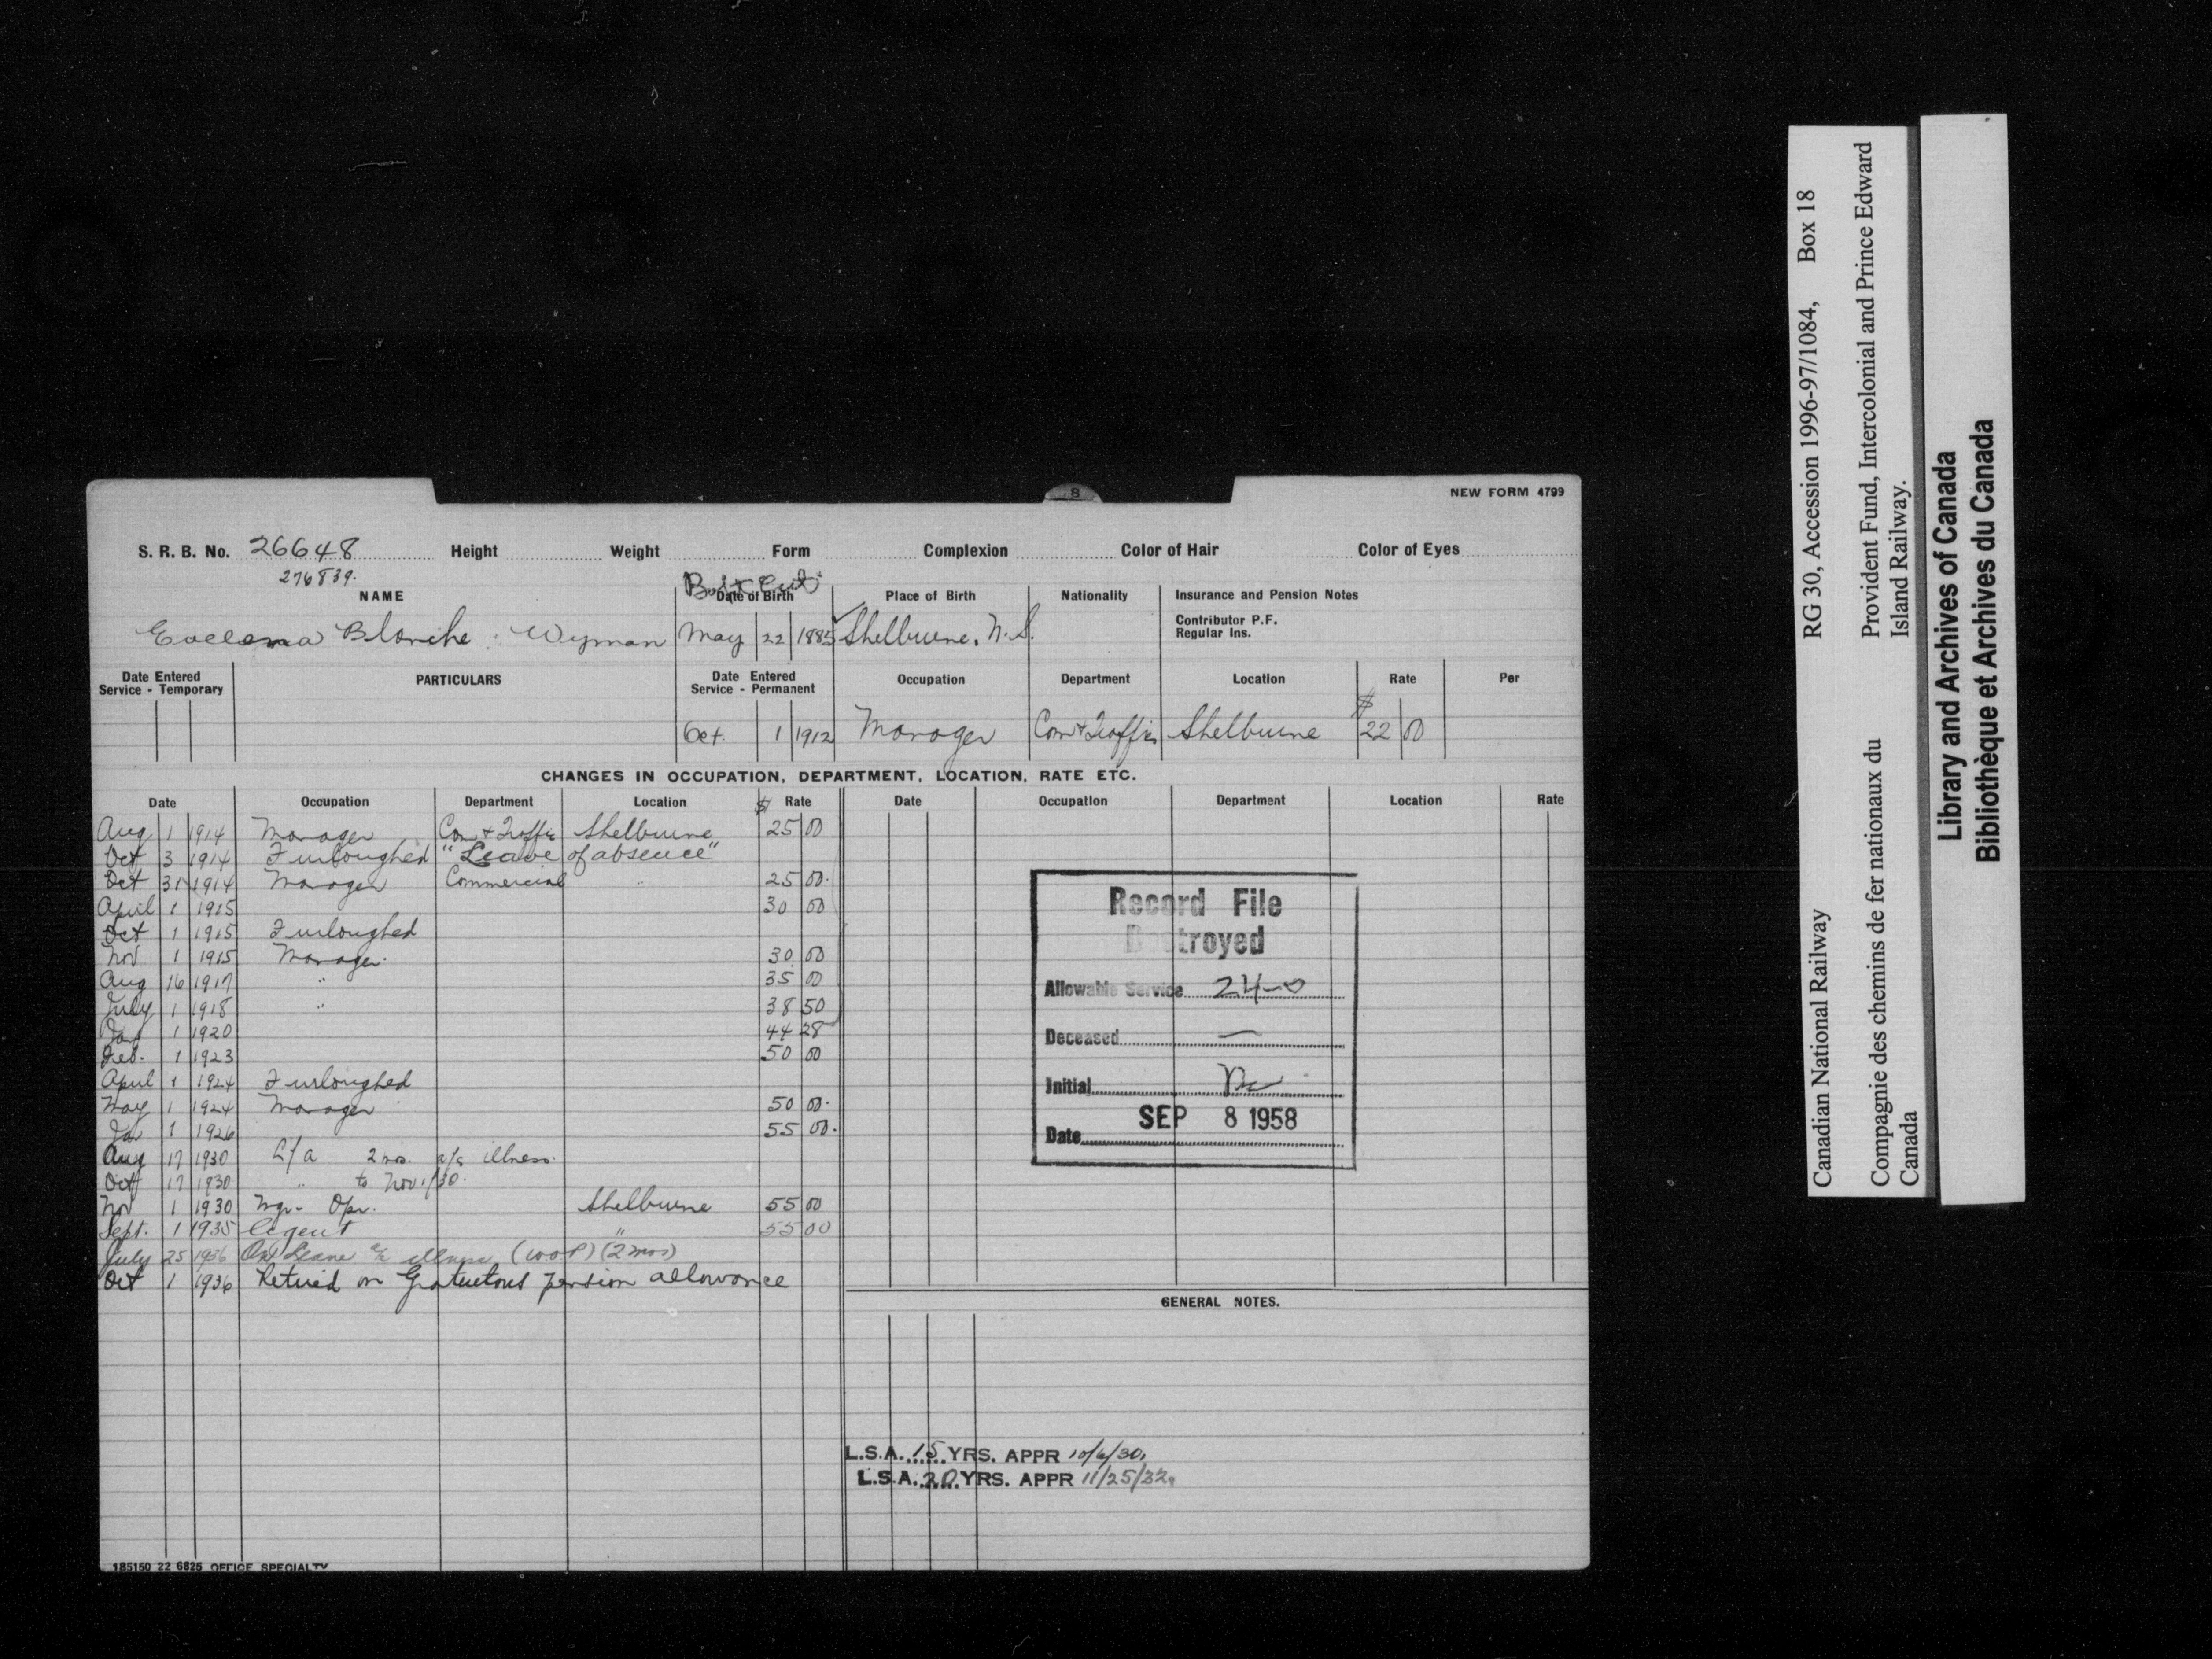 NEW FORM 4799
8
S. R. B. No. 26648 Height Weight Form Complexion Color of Hair Color of Eyes
276839.
NAME Date of Birth Place of Birth Nationality Insurance and Pension Notes
Contributor P.F.
Regular Ins.
Blanche Wyman May 22 1885 Shelburne, N.S.
Date Entered Service - Temporary PARTICULARS Date Entered Service - Permanent Occupation Department Location Rate Per
Oct. 1 1912 Manager Com & Traffic Shelburne $ 22 00
CHANGES IN OCCUPATION, DEPARTMENT, LOCATION, RATE ETC.
Date Occupation Department Location $ Rate Date Occupation Department Location Rate
Aug 1 1914 Manager Com & Traffic Shelburne 25 00
Oct 3 1914 Furloughed "Leave of absence"
Oct 31 1914 Manager Commercial " 25 00.
April 1 1915 30 00
Oct 1 1915 Furloughed
Nov 1 1915 Manager. 30 00
Aug 16 1917 " 35 00
July 1 1918 " 38 50
Jan 1 1920 44 28
Feb. 1 1923 50 00
April 1 1924 Furloughed
May 1 1924 Manager 50 00.
Ja 1 1926 55 00.
Aug 17 1930 L/a 2 mos. a/c illness.
Oct 17 1930 " to Nov 1/30.
Nov 1 1930 Mgr- Opr. Shelburne 55 00
Sept. 1 1935 Agent " 55 00
July 25 1936 Leave a/c illness (WOP) (2 mos)
Oct 1 1936 Retired on Gratuitous pension allowance
Record File
Destroyed
Allowable Service 24-0
Deceased —
Initial
Date SEP 8 1958
GENERAL NOTES.
L.S.A. 15 YRS. APPR 10/6/30.
L.S.A. 20 YRS. APPR 11/25/32.
185150 22 6825 OFFICE SPECIALTY
Canadian National Railway RG 30, Accession 1996-97/1084, Box 18
Compagnie des chemins de fer nationaux du Canada
Provident Fund, Intercolonial and Prince Edward Island Railway.
Library and Archives of Canada
Bibliothèque et Archives du Canada